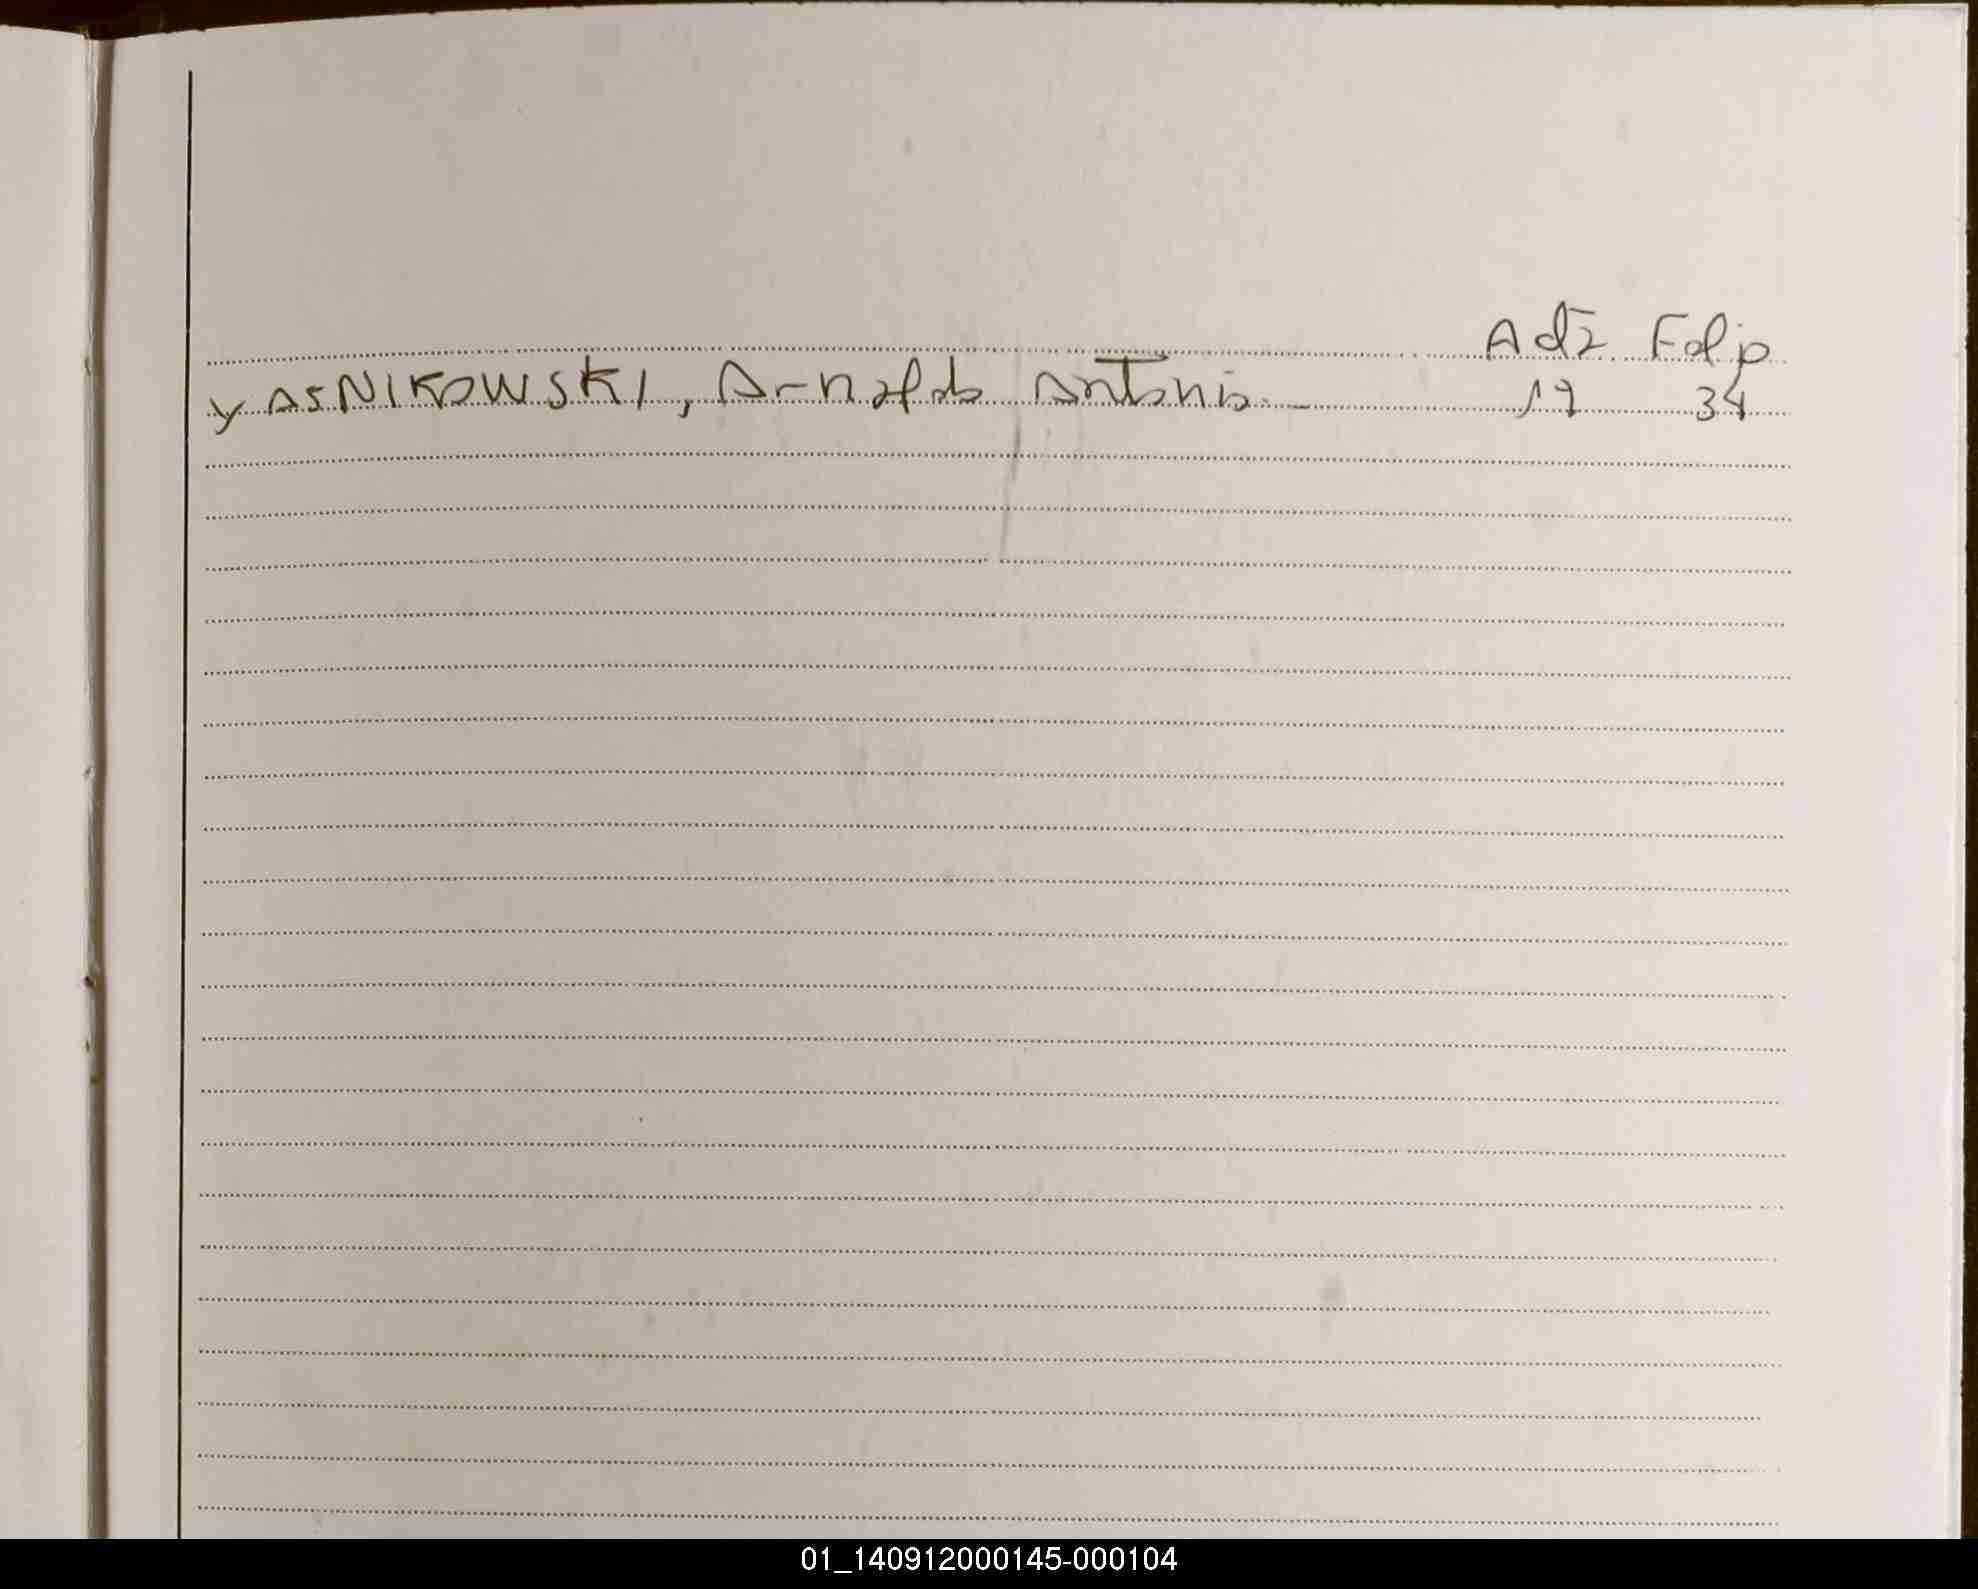 Acta Folio
YASNIKOWSKI, Arnaldo Antonio.- 17 34
01_140912000145-000104